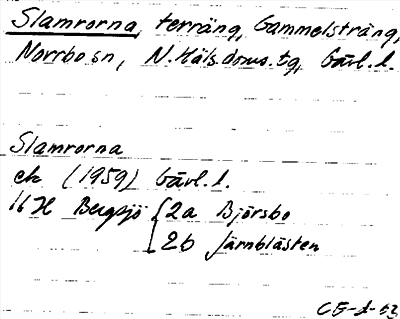 Slamrorna, terräng, Gammelsträng,
Norrbo sn, N. Häls. doms. tg, Gävl. l.
Slamrorna
ek (1959) Gävl. l.
16 H Bergsjö 2a Björsbo
2b Järnblästen